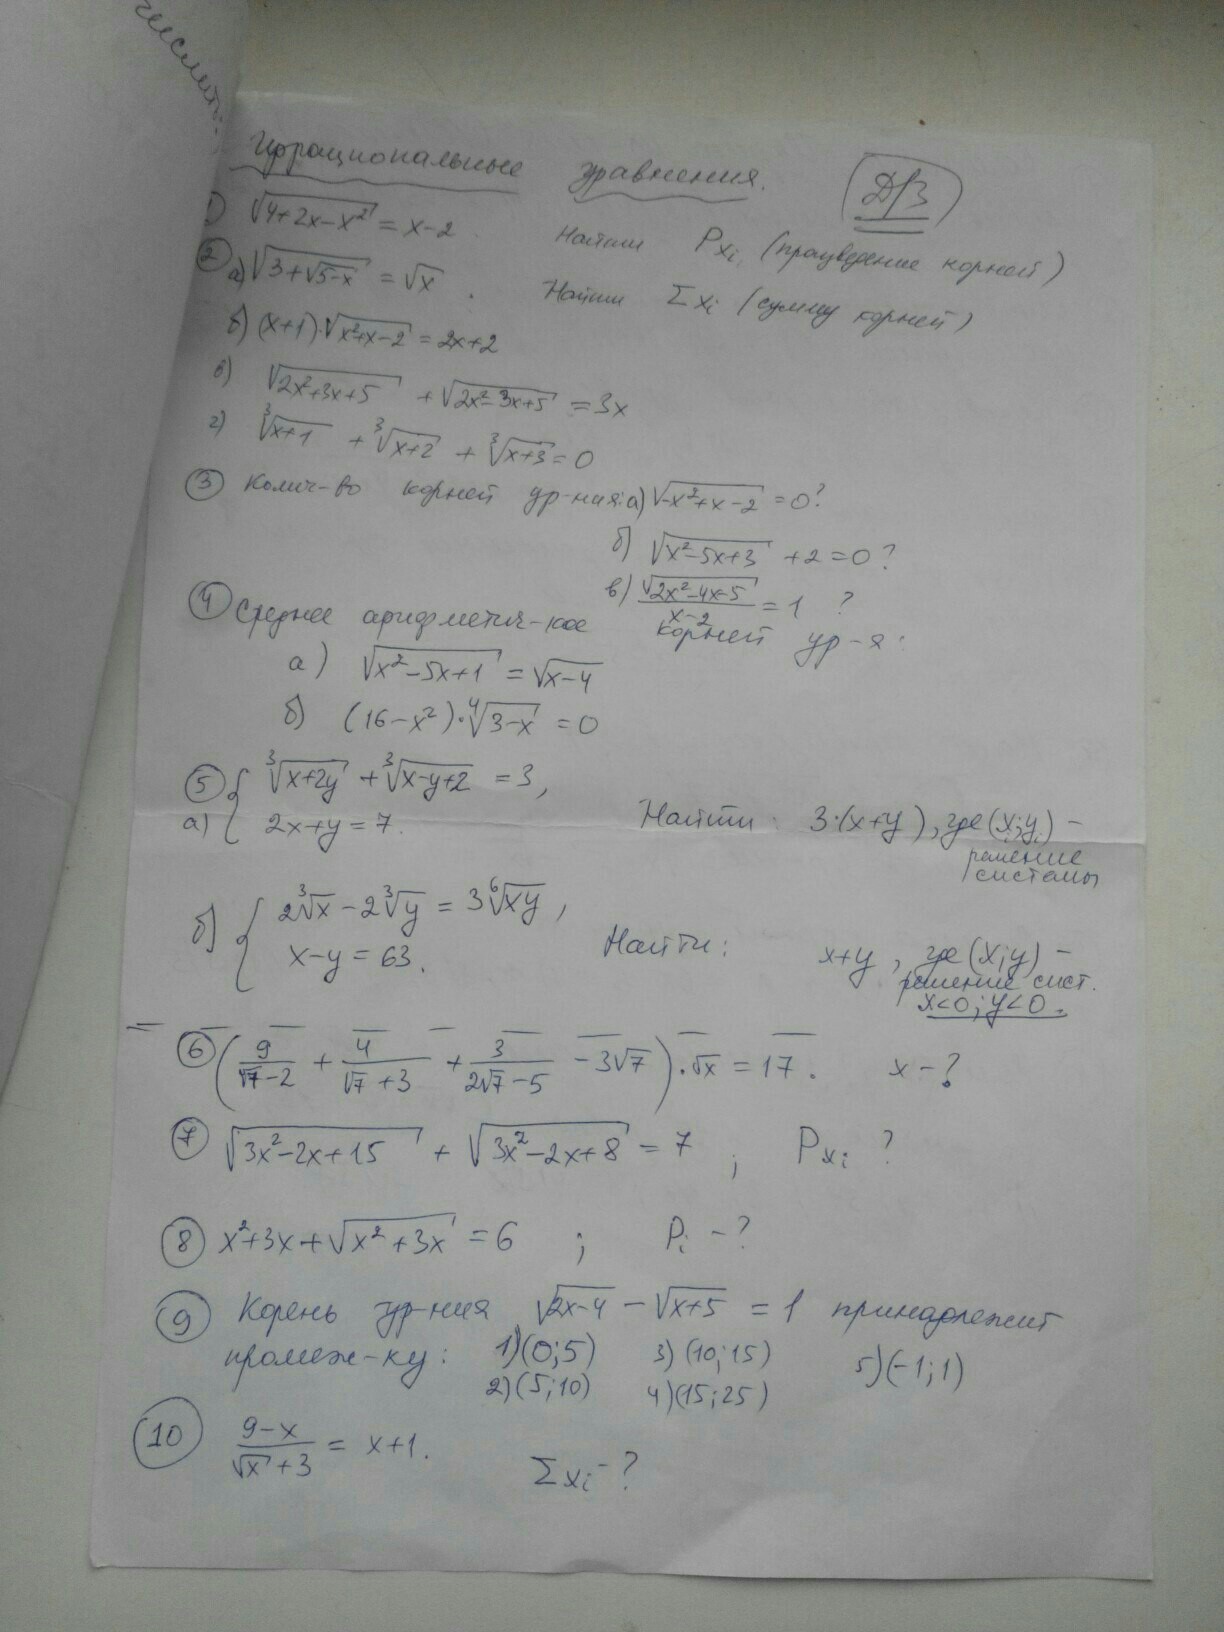 числит.
Иррациональные уравнения. Д/З
1) √(4+2x-x²) = x-2. Найти Pxᵢ (произведение корней)
2 а) √(3+√(5-x)) = √x. Найти Σxᵢ (сумму корней)
б) (x+1)·√(x²+x-2) = 2x+2
в) √(2x²+3x+5) + √(2x²-3x+5) = 3x
г) ∛(x+1) + ∛(x+2) + ∛(x+3) = 0
3 Колич-во корней ур-ния: а) √(-x²+x-2) = 0?
б) √(x²-5x+3) + 2 = 0?
в) √(2x²-4x-5)/(x-2) = 1 ?
4 Среднее арифметич-кое корней ур-я:
а) √(x²-5x+1) = √(x-4)
б) (16-x²)·∜(3-x) = 0
5 а) { ∛(x+2y) + ∛(x-y+2) = 3,
2x+y = 7. Найти: 3·(x+y), где (xᵢ;yᵢ) –
решение
системы
б) { 2∛x - 2∛y = 3⁶√(xy),
x-y = 63. Найти: x+y, где (x;y) –
решение сист.
x<0; y<0.
6 (9/(√7-2) + 4/(√7+3) + 3/(2√7-5) - 3√7)·√x = 17. x-?
7 √(3x²-2x+15) + √(3x²-2x+8) = 7 ; Pxᵢ ?
8 x²+3x+√(x²+3x) = 6 ; Pᵢ -?
9 Корень ур-ния √(2x-4) - √(x+5) = 1 принадлежит
промеж-ку: 1) (0;5) 3) (10;15) 5) (-1;1)
2) (5;10) 4) (15;25)
10 (9-x)/(√x+3) = x+1. Σxᵢ -?